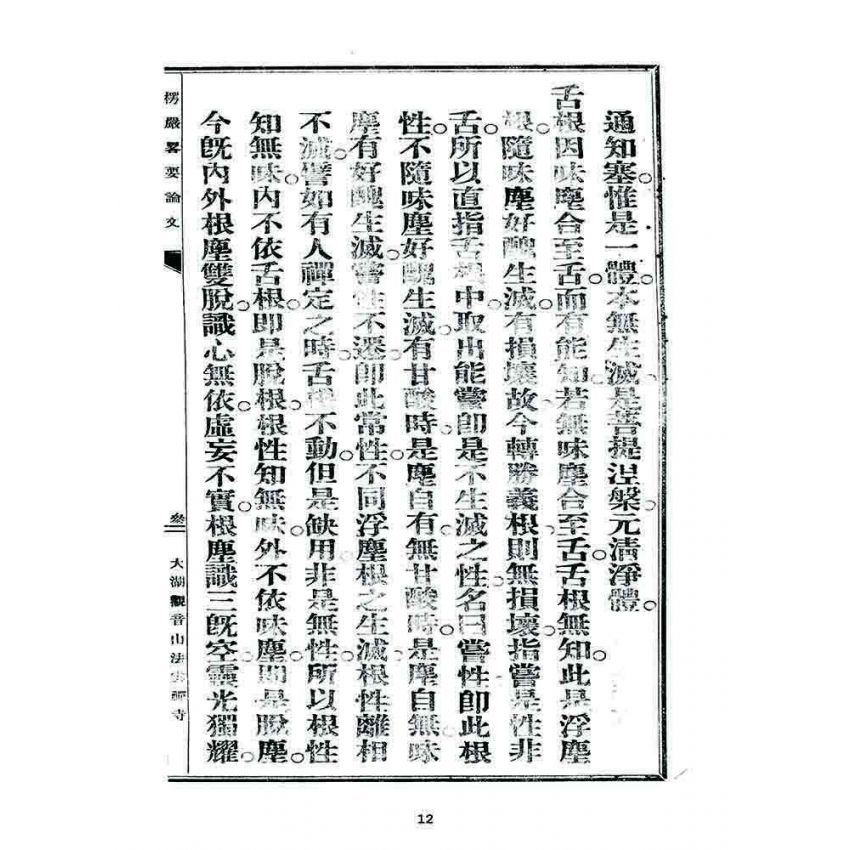 通知塞。惟是一體。本無生滅。是菩提涅槃元清淨體。
舌根因味塵合至舌。而有能知。若無味塵合至舌。舌根無知。此是浮塵
根。隨味塵好醜生滅。有損壞。故今轉勝義根。則無損壞。指嘗是性。非
舌。所以直指舌根中。取出能嘗。即是不生滅之性。名曰嘗性。即此根
性。不隨味塵好醜生滅。有甘酸時。是塵自有。無甘酸時。是塵自無。味
塵有好醜生滅。嘗性不遷。即此常性。不同浮塵根之生滅。根性離相
不滅。譬如有人禪定之時。舌根不動。但是缺用。非是無性。所以根性
知無味。內不依舌根。即是脫根。根性知無味。外不依味塵。即是脫塵。
今既內外根塵雙脫。識心無依。虛妄不實。根塵識三既空。靈光獨耀。
楞嚴畧要論文
大湖觀音山法雲禪寺
12